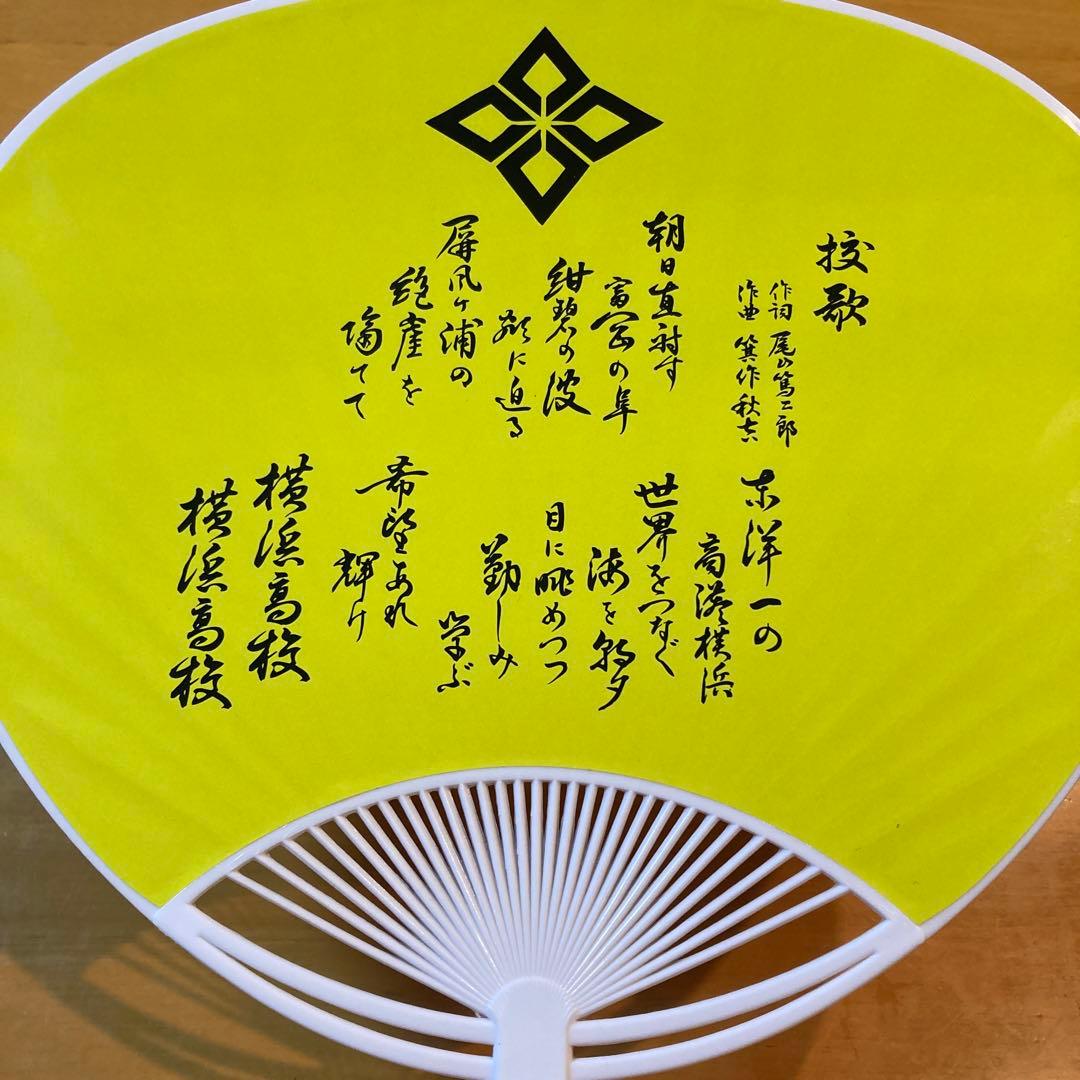 校歌
作詞 尾山篤二郎
作曲 箕作秋吉
朝日直射す
富岡の阜
紺碧の波
に迫る
屏風ヶ浦の
絶崖を
隔てて
東洋一の
商港横浜
世界をつなぐ
海を朝夕
目に眺めつつ
勤しみ
学ぶ
希望あれ
輝け
横浜高校
横浜高校